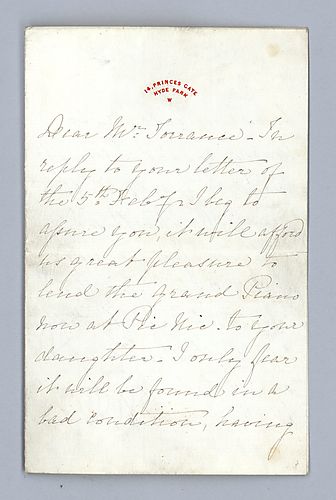 14, PRINCES GATE
HYDE PARK
W
Dear Mrs Torrance - In
reply to your letter of
the 5th Feby I beg to
assure you, it will afford
us great pleasure to
lend the grand Piano
now at Pic Nic. to your
daughter - I only fear
it will be found in a
bad condition, having